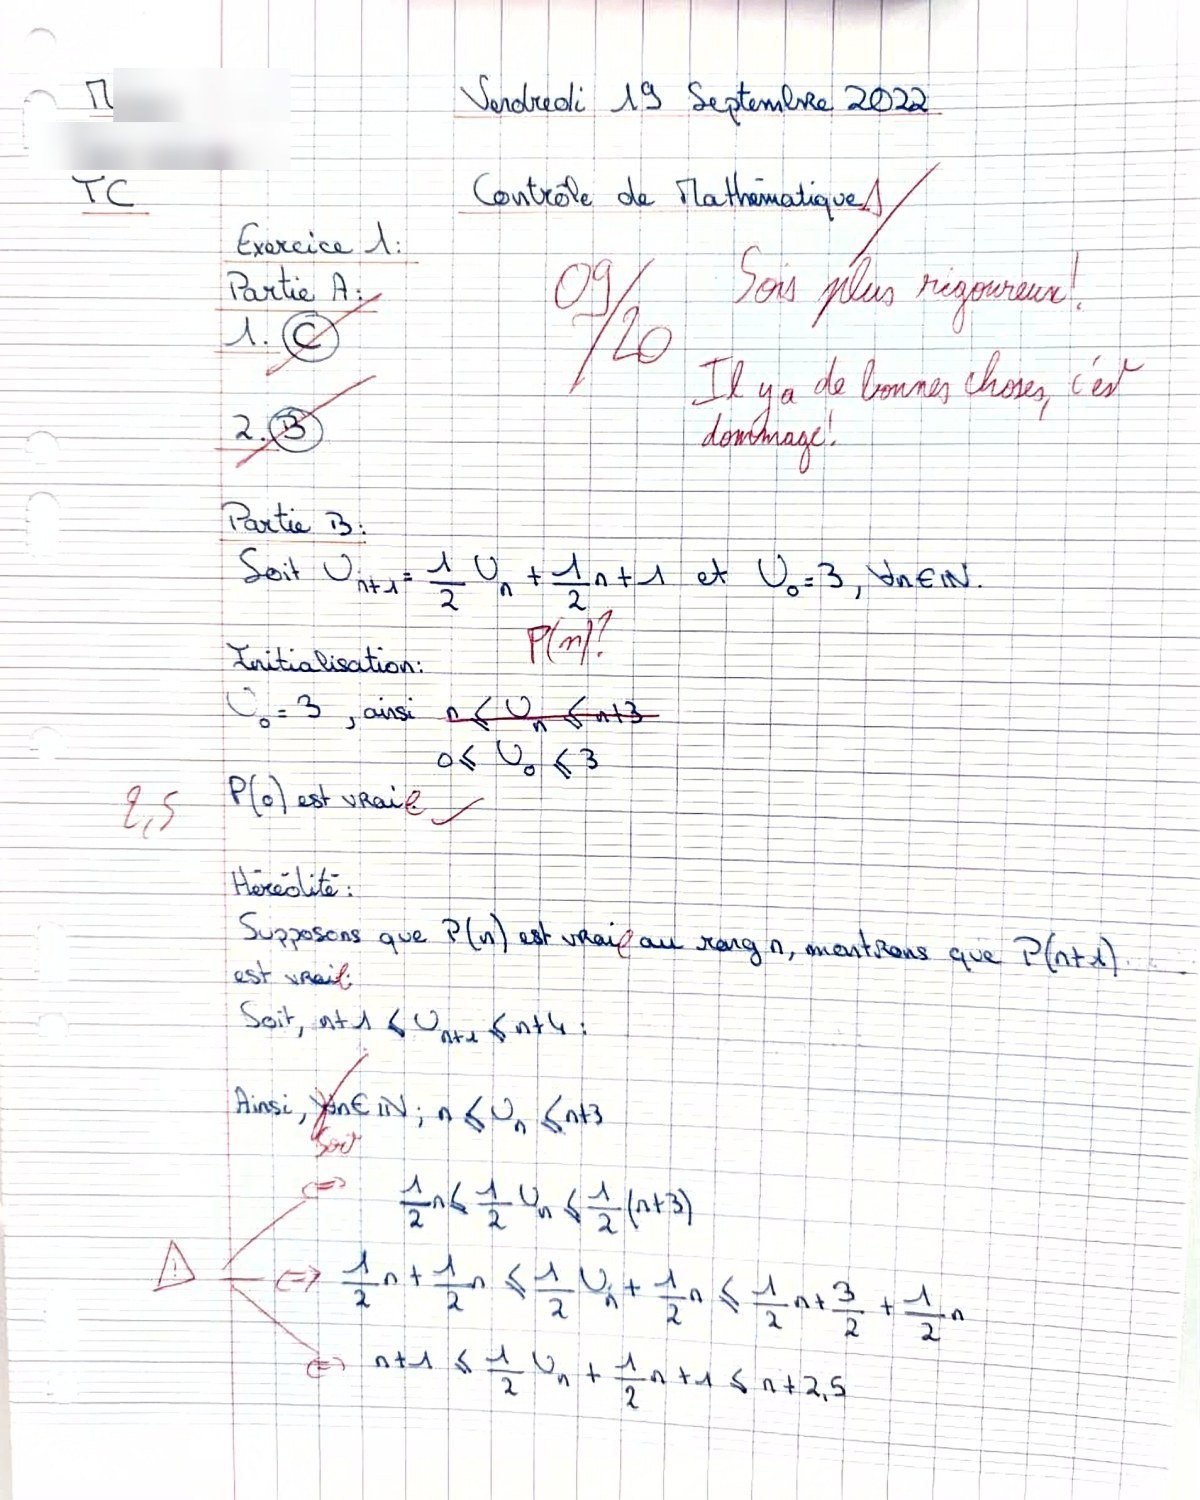 Vendredi 19 Septembre 2022
TC
Contrôle de Mathématiques
Exercice 1:
Partie A:
09/20
Sois plus rigoureux!
1. C
Il y a de bonnes choses, c'est
dommage!
2. B
Partie B:
Soit U_{n+1} = \frac{1}{2} U_n + \frac{1}{2} n + 1 et U_0 = 3, ∀n∈ℕ.
P(n)?
Initialisation:
U_0 = 3, ainsi n ⩽ U_n ⩽ n+3
0 ⩽ U_0 ⩽ 3
2,5
P(0) est vraie ✓
Hérédité:
Supposons que P(n) est vraie au rang n, montrons que P(n+1)
est vraie
Soit, n+1 ⩽ U_{n+1} ⩽ n+4 :
Ainsi, ∀n∈ℕ; n ⩽ U_n ⩽ n+3
Soit
⇔ \frac{1}{2} n ⩽ \frac{1}{2} U_n ⩽ \frac{1}{2} (n+3)
⚠ ⇔ \frac{1}{2} n + \frac{1}{2} n ⩽ \frac{1}{2} U_n + \frac{1}{2} n ⩽ \frac{1}{2} n + \frac{3}{2} + \frac{1}{2} n
⇔ n+1 ⩽ \frac{1}{2} U_n + \frac{1}{2} n + 1 ⩽ n+2,5